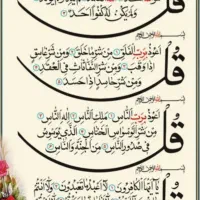 وَلَمْ يَكُنْ لَهُ كُفُوًا أَحَدٌ
قُلْ
أَعُوذُ بِرَبِّ الْفَلَقِ مِنْ شَرِّ مَا خَلَقَ وَمِنْ شَرِّ غَاسِقٍ
إِذَا وَقَبَ وَمِنْ شَرِّ النَّفَّاثَاتِ فِي الْعُقَدِ
وَمِنْ شَرِّ حَاسِدٍ إِذَا حَسَدَ
قُلْ
أَعُوذُ بِرَبِّ النَّاسِ مَلِكِ النَّاسِ إِلَهِ النَّاسِ
مِنْ شَرِّ الْوَسْوَاسِ الْخَنَّاسِ الَّذِي يُوَسْوِسُ
فِي صُدُورِ النَّاسِ مِنَ الْجِنَّةِ وَالنَّاسِ
قُلْ
يَا أَيُّهَا الْكَافِرُونَ لَا أَعْبُدُ مَا تَعْبُدُونَ وَلَا أَنْتُمْ